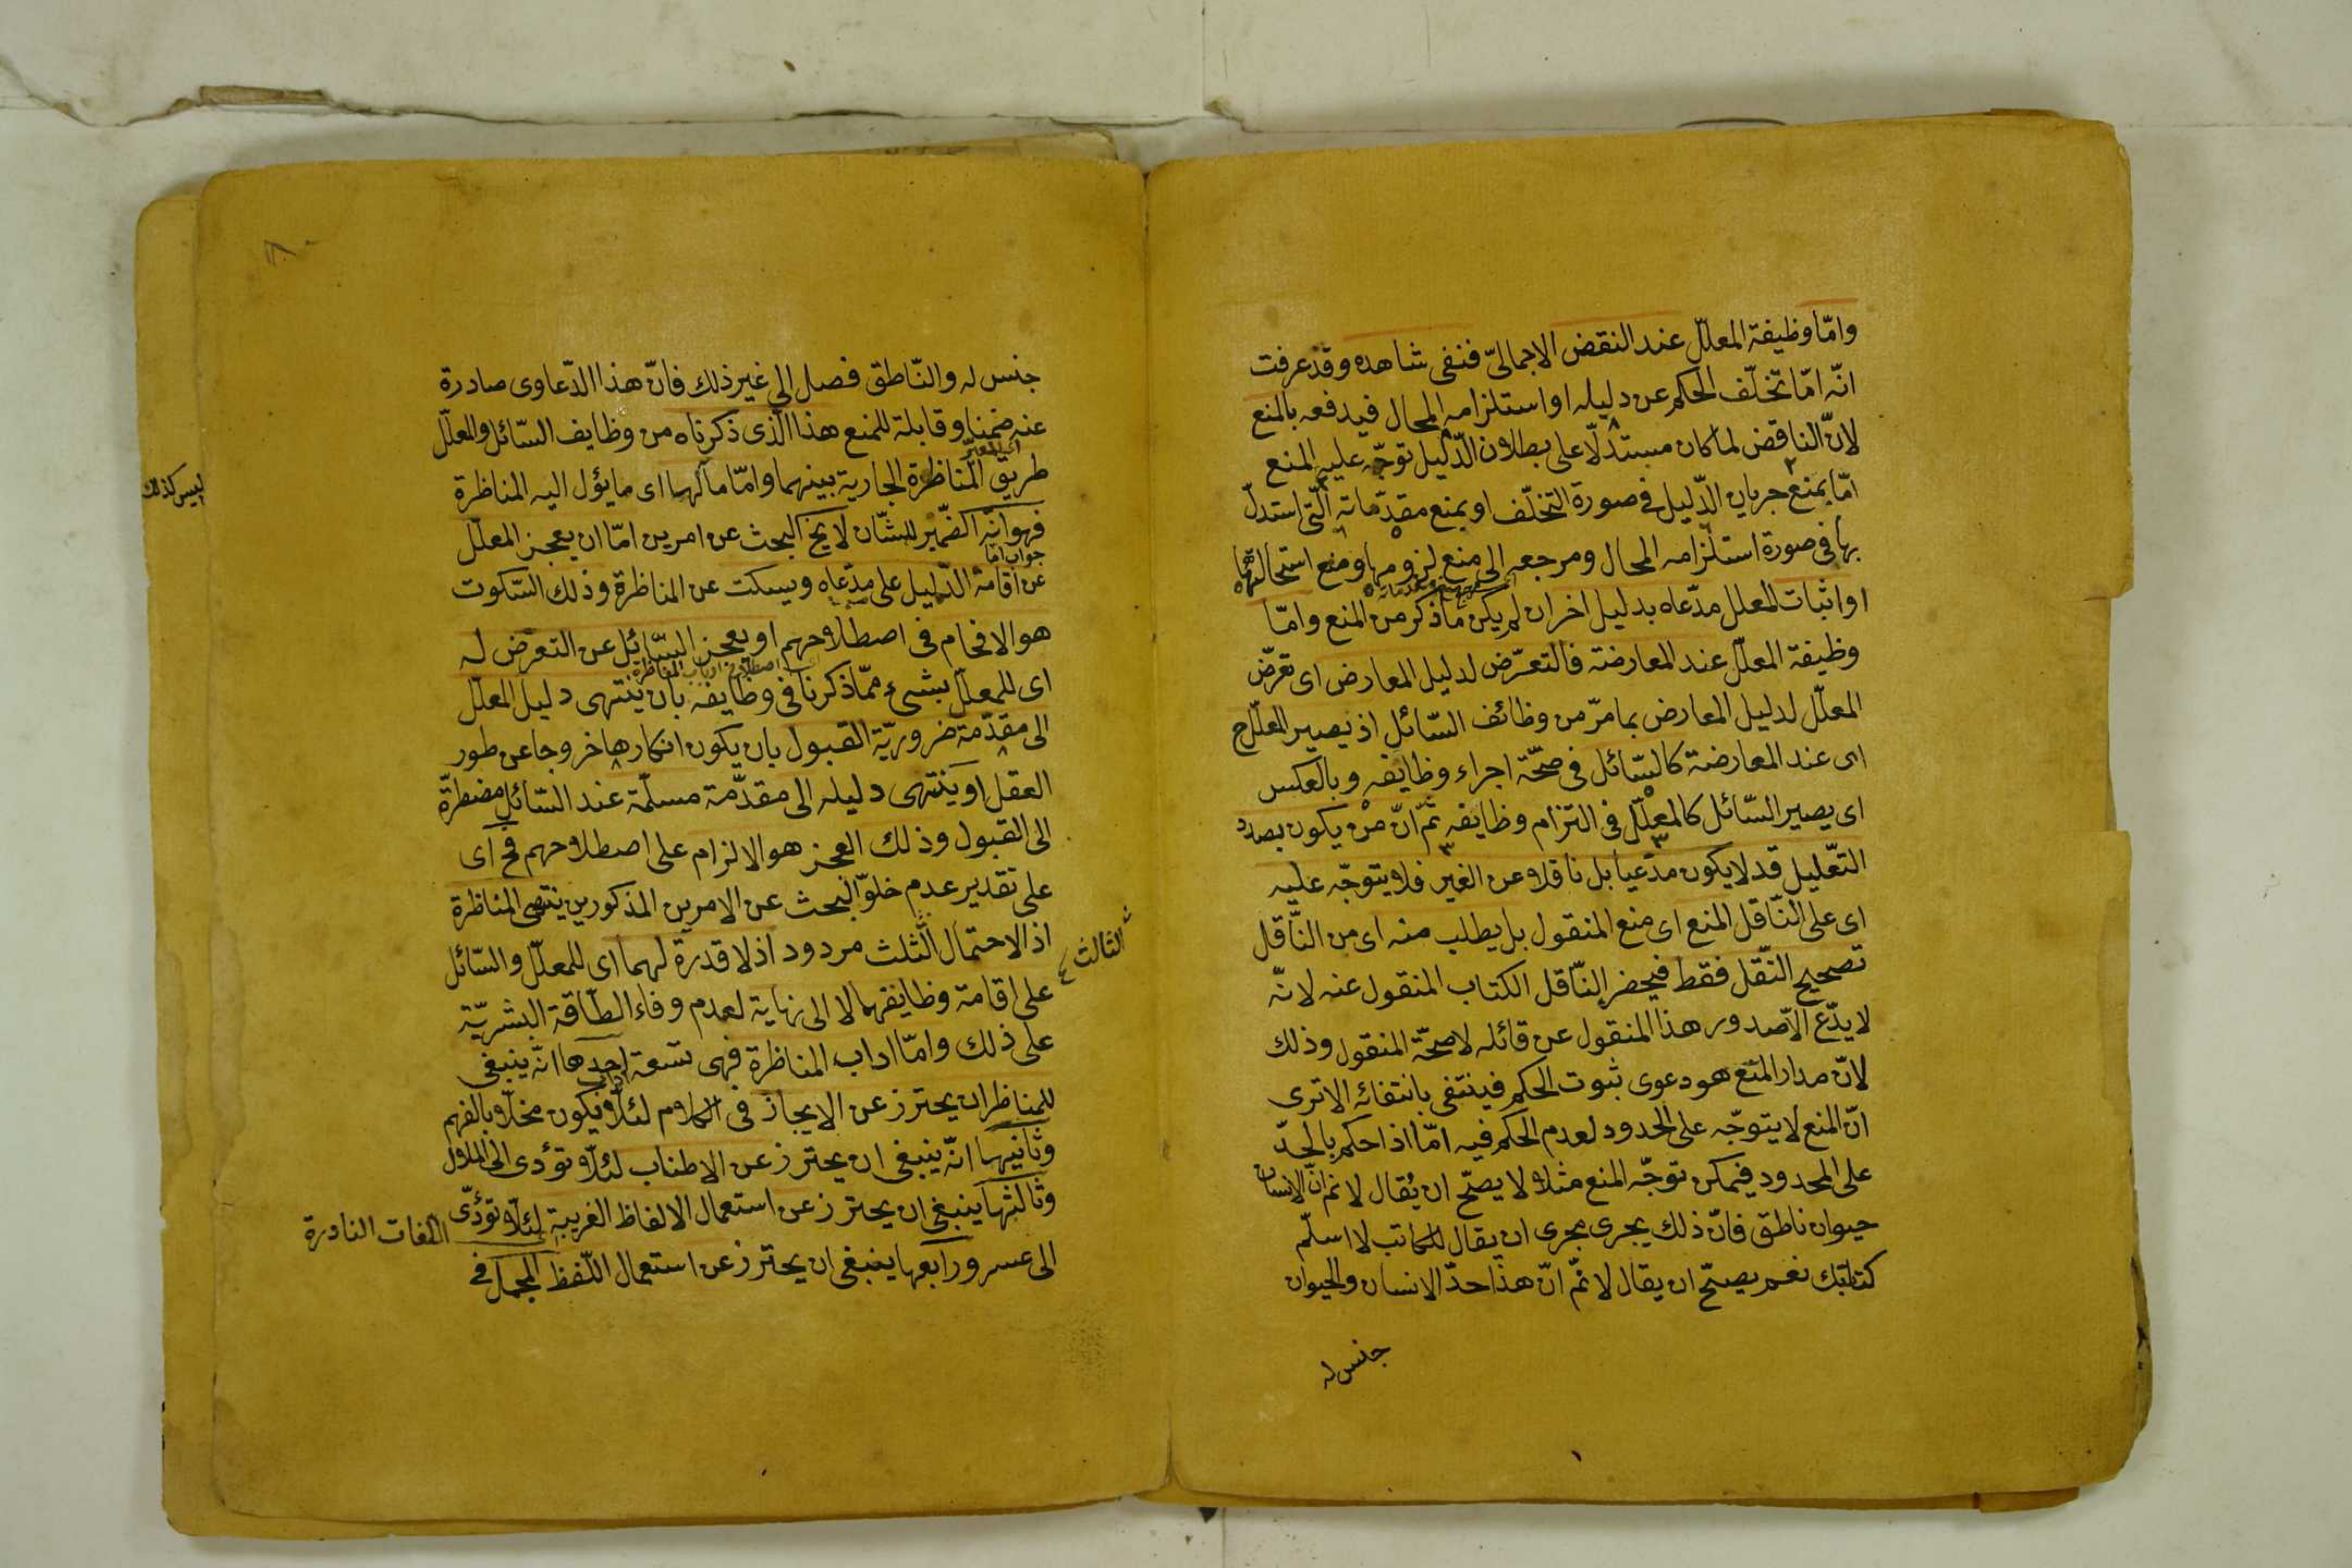 وامّا وظيفة المعلّل عند النقض الاجماليّ فنفى شاهده وقد عرفت
انّه امّا تخلّف الحكم عن دليله او استلزامه المحال فيدفعه بالمنع
لانّ الناقض لما كان مستدلّا على بطلان الدّليل توجّه عليه المنع
امّا بمنع جريان الدّليل فى صورة التخلّف او بمنع مقدّماته الّتى استدلّ
بها فى صورة استلزامه المحال ومرجعه الى منع لزومها ومنع استحالتها
او اثبات المعلل مدّعاه بدليل اخر ان لم يكن ما ذكر من المنع وامّا
وظيفة المعلّل عند المعارضة فالتعرّض لدليل المعارض اى تعرّض
المعلّل لدليل المعارض بما مرّ من وظائف السّائل اذ يصير المعلّل ح
اى عند المعارضة كالسّائل فى صحّة اجراء وظايفه وبالعكس
اى يصير السّائل كالمعلّل فى التزام وظايفه ثمّ انّ من يكون بصدد
التّعليل قد لا يكون مدّعيا بل ناقلا عن الغير فلا يتوجّه عليه
اى على النّاقل المنع اى منع المنقول بل يطلب منه اى من النّاقل
تصحيح النّقل فقط فيحضر النّاقل الكتاب المنقول عنه لانّه
لا يدّع الّا صدور هذا المنقول عن قائله لا صحّة المنقول وذلك
لانّ مدار المنع هو دعوى ثبوت الحكم فينتفى بانتفائه الا ترى
انّ المنع لا يتوجّه على الحدود لعدم الحكم فيه امّا اذا حكم بالحدّ
على المحدود فيمكن توجّه المنع مثلا لا يصحّ ان يُقال لا نم انّ الانسان
حيوان ناطق فانّ ذلك يجرى مجرى ان يقال للكاتب لا اسلّم
كتابتك نعم يصحّ ان يقال لا نمّ انّ هذا حدّ الانسان والحيوان
جنس له
جنس له والنّاطق فصل الى غير ذلك فانّ هذا الدّعاوى صادرة
عنه ضمنا وقابلة للمنع هذا الّذى ذكرناه من وظايف السّائل والمعلّل
طريق المناظرة الجارية بينهما وامّا مآلها اى ما يؤل اليه المناظرة
ليس كذلك
فهو انّه الضّمير للشّان لا يخ البحث عن امرين امّا ان يعجز المعلّل
جواب امّا
عن اقامة الدّليل على مدّعاه ويسكت عن المناظرة وذلك السّكوت
هو الافحام فى اصطلاحهم او يعجز السّائل عن التعرّض له
اصطلاح ارباب المناظرة
اى للمعلّل بشىء ممّا ذكرنا فى وظايفه بان ينتهى دليل المعلّل
الى مقدّمة ضروريّة القبول بان يكون انكارها خروجا عن طور
العقل او ينتهى دليله الى مقدّمة مسلّمة عند السّائل مضطرّة
الى القبول وذلك العجز هو الالزام على اصطلاحهم فح اى
على تقدير عدم خلوّ البحث عن الامرين المذكورين ينتهى المناظرة
اذ الاحتمال الثّلث مردود اذ لا قدرة لهما اى للمعلّل والسّائل
الثالث
على اقامة وظايفهما لا الى نهاية لعدم وفاء الطّاقة البشريّة
على ذلك وامّا اداب المناظرة فهى تسعة احدها انّه ينبغى
للمناظر ان يحترز عن الايجاز فى الكلام لئلّا يكون مخلّا بالفهم
وثانيها انّه ينبغى ان يحترز عن الاطناب لئلّا تؤدى الى الملال
وثالثها ينبغى ان يحترز عن استعمال الالفاظ الغريبة لئلّا تؤدّى
اللغات النادرة
الى عسر ورابعها ينبغى ان يحترز عن استعمال اللّفظ المجمل فى